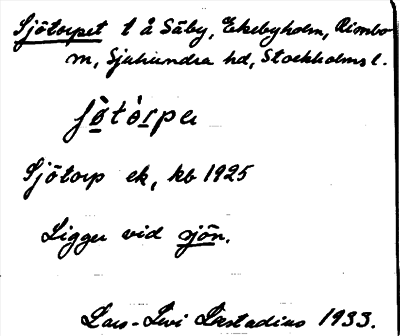 Sjötorpet t å Säby, Ekebyholm, Rimbo
m, Sjuhundra hd, Stockholms l.
ʃø̀tórpa
Sjötorp ek, kb 1925
Ligger vid sjön.
Lars-Levi Læstadius 1933.